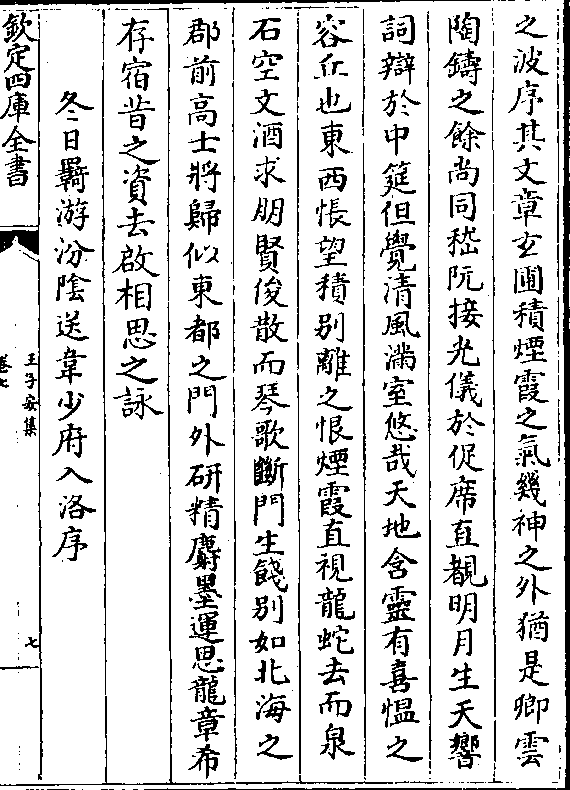 之波序其文章玄圃積煙霞之氣幾神之外猶是卿雲
陶鑄之餘尚同嵇阮接光儀於促席直覩明月生天響
詞辯於中筵但覺清風滿室悠哉天地含靈有喜愠之
容丘也東西悵望積别離之恨煙霞直視龍蛇去而泉
石空文酒求朋賢俊散而琴歌斷門生餞别如北海之
郡前髙士將歸似東都之門外研精麝墨運思龍章希
存宿昔之資去啟相思之詠
冬日羇游汾陰送韋少府入洛序
欽定四庫全書
王子安集
卷七
七